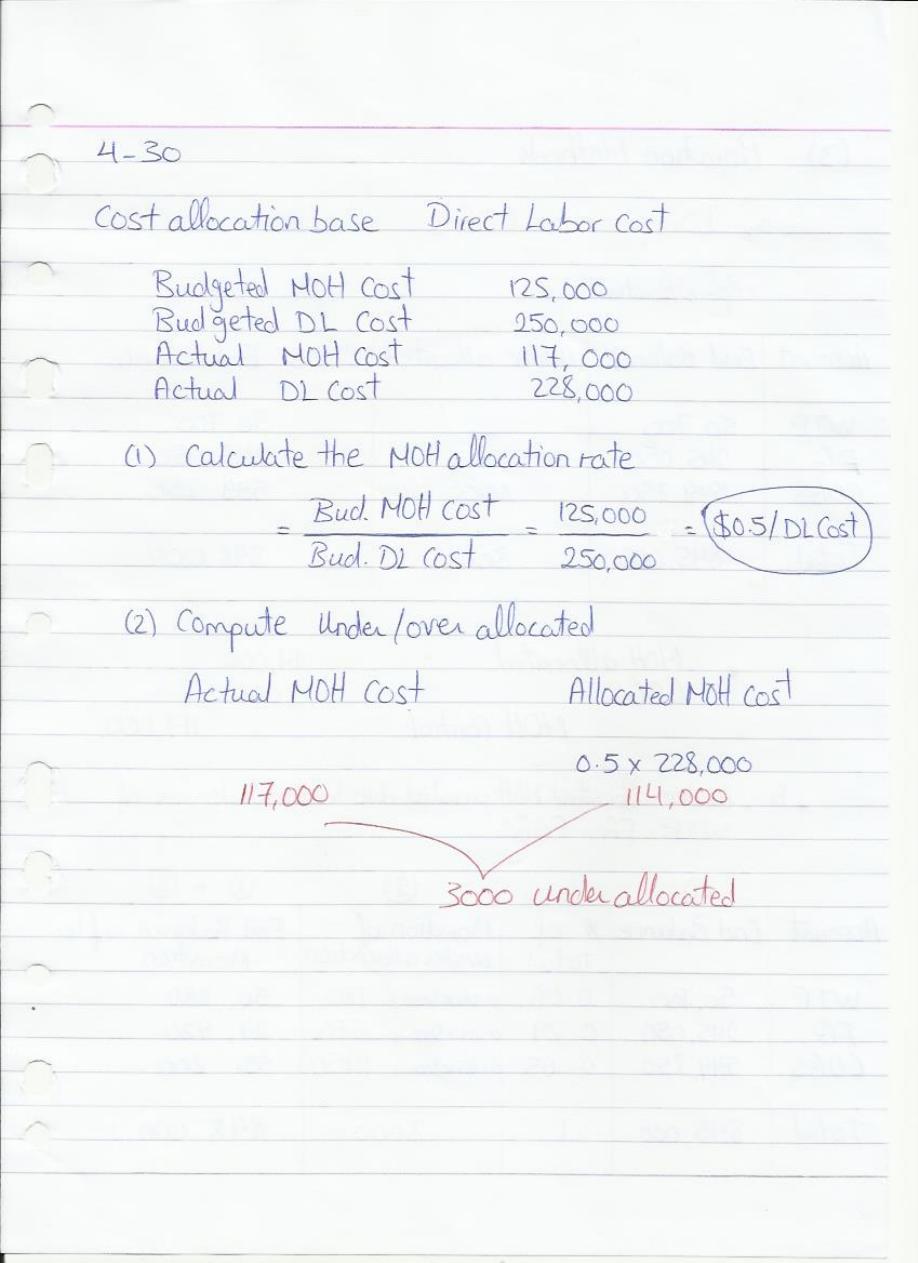 4-30
Cost allocation base Direct Labor Cost
Budgeted MOH Cost 125,000
Budgeted DL Cost 250,000
Actual MOH Cost 117,000
Actual DL Cost 228,000
(1) Calculate the MOH allocation rate
= Bud. MOH Cost / Bud. DL Cost = 125,000 / 250,000 = $0.5/DL Cost
(2) Compute Under/over allocated
Actual MOH Cost Allocated MOH Cost
0.5 x 228,000
117,000 114,000
3000 under allocated